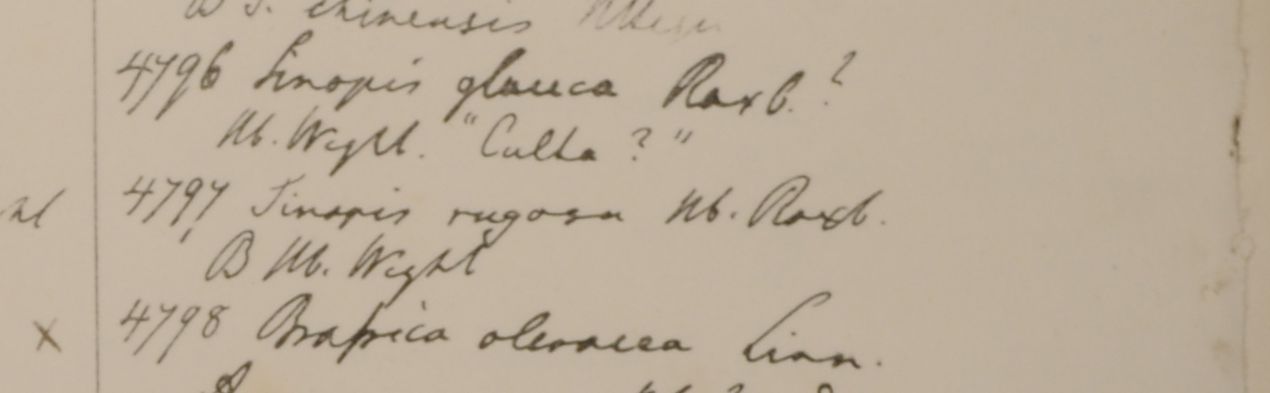 B S. chinensis
4796 Sinapis glauca Roxb.?
Hb. Wight. "Culta?"
4797 Sinapis rugosa Hb. Roxb.
B Hb. Wight
x 4798 Brassica oleracea Linn.